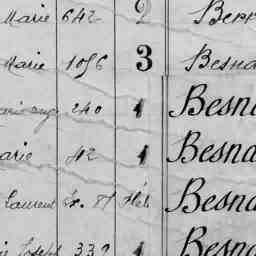 Marie 642 2 Berr
Marie 1056 3 Besna
240 1 Besn
arie 42 1 Besna
Laurent Ex. 81 Besna
Joseph 332 1 Besna